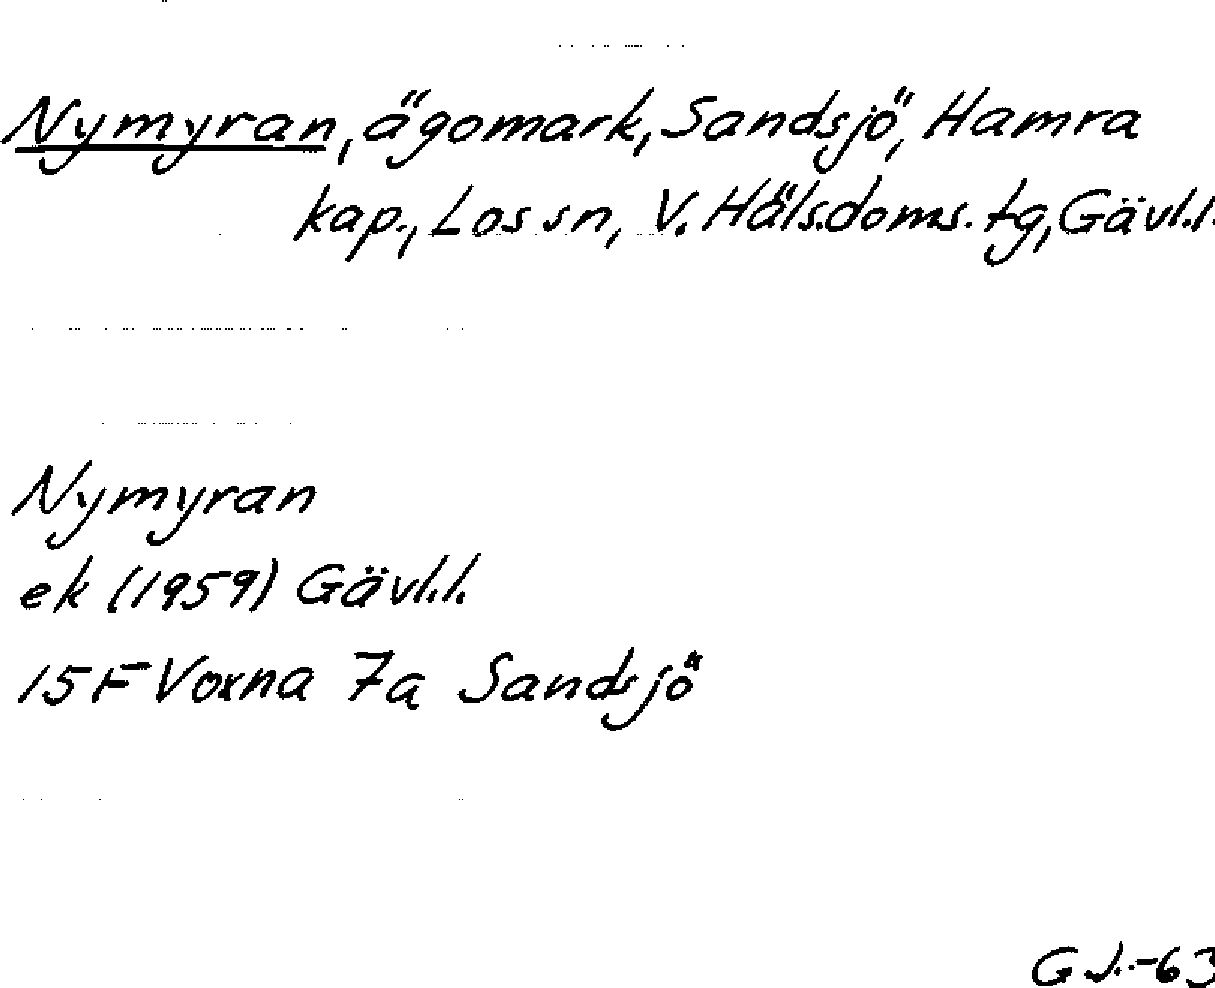 Nymyran, ägomark, Sandsjö, Hamra
kap., Los sn, V. Häls.doms.tg, Gävl.l.
Nymyran
ek (1959) Gävl.l.
15 F Voxna 7a Sandsjö
G.J.-63